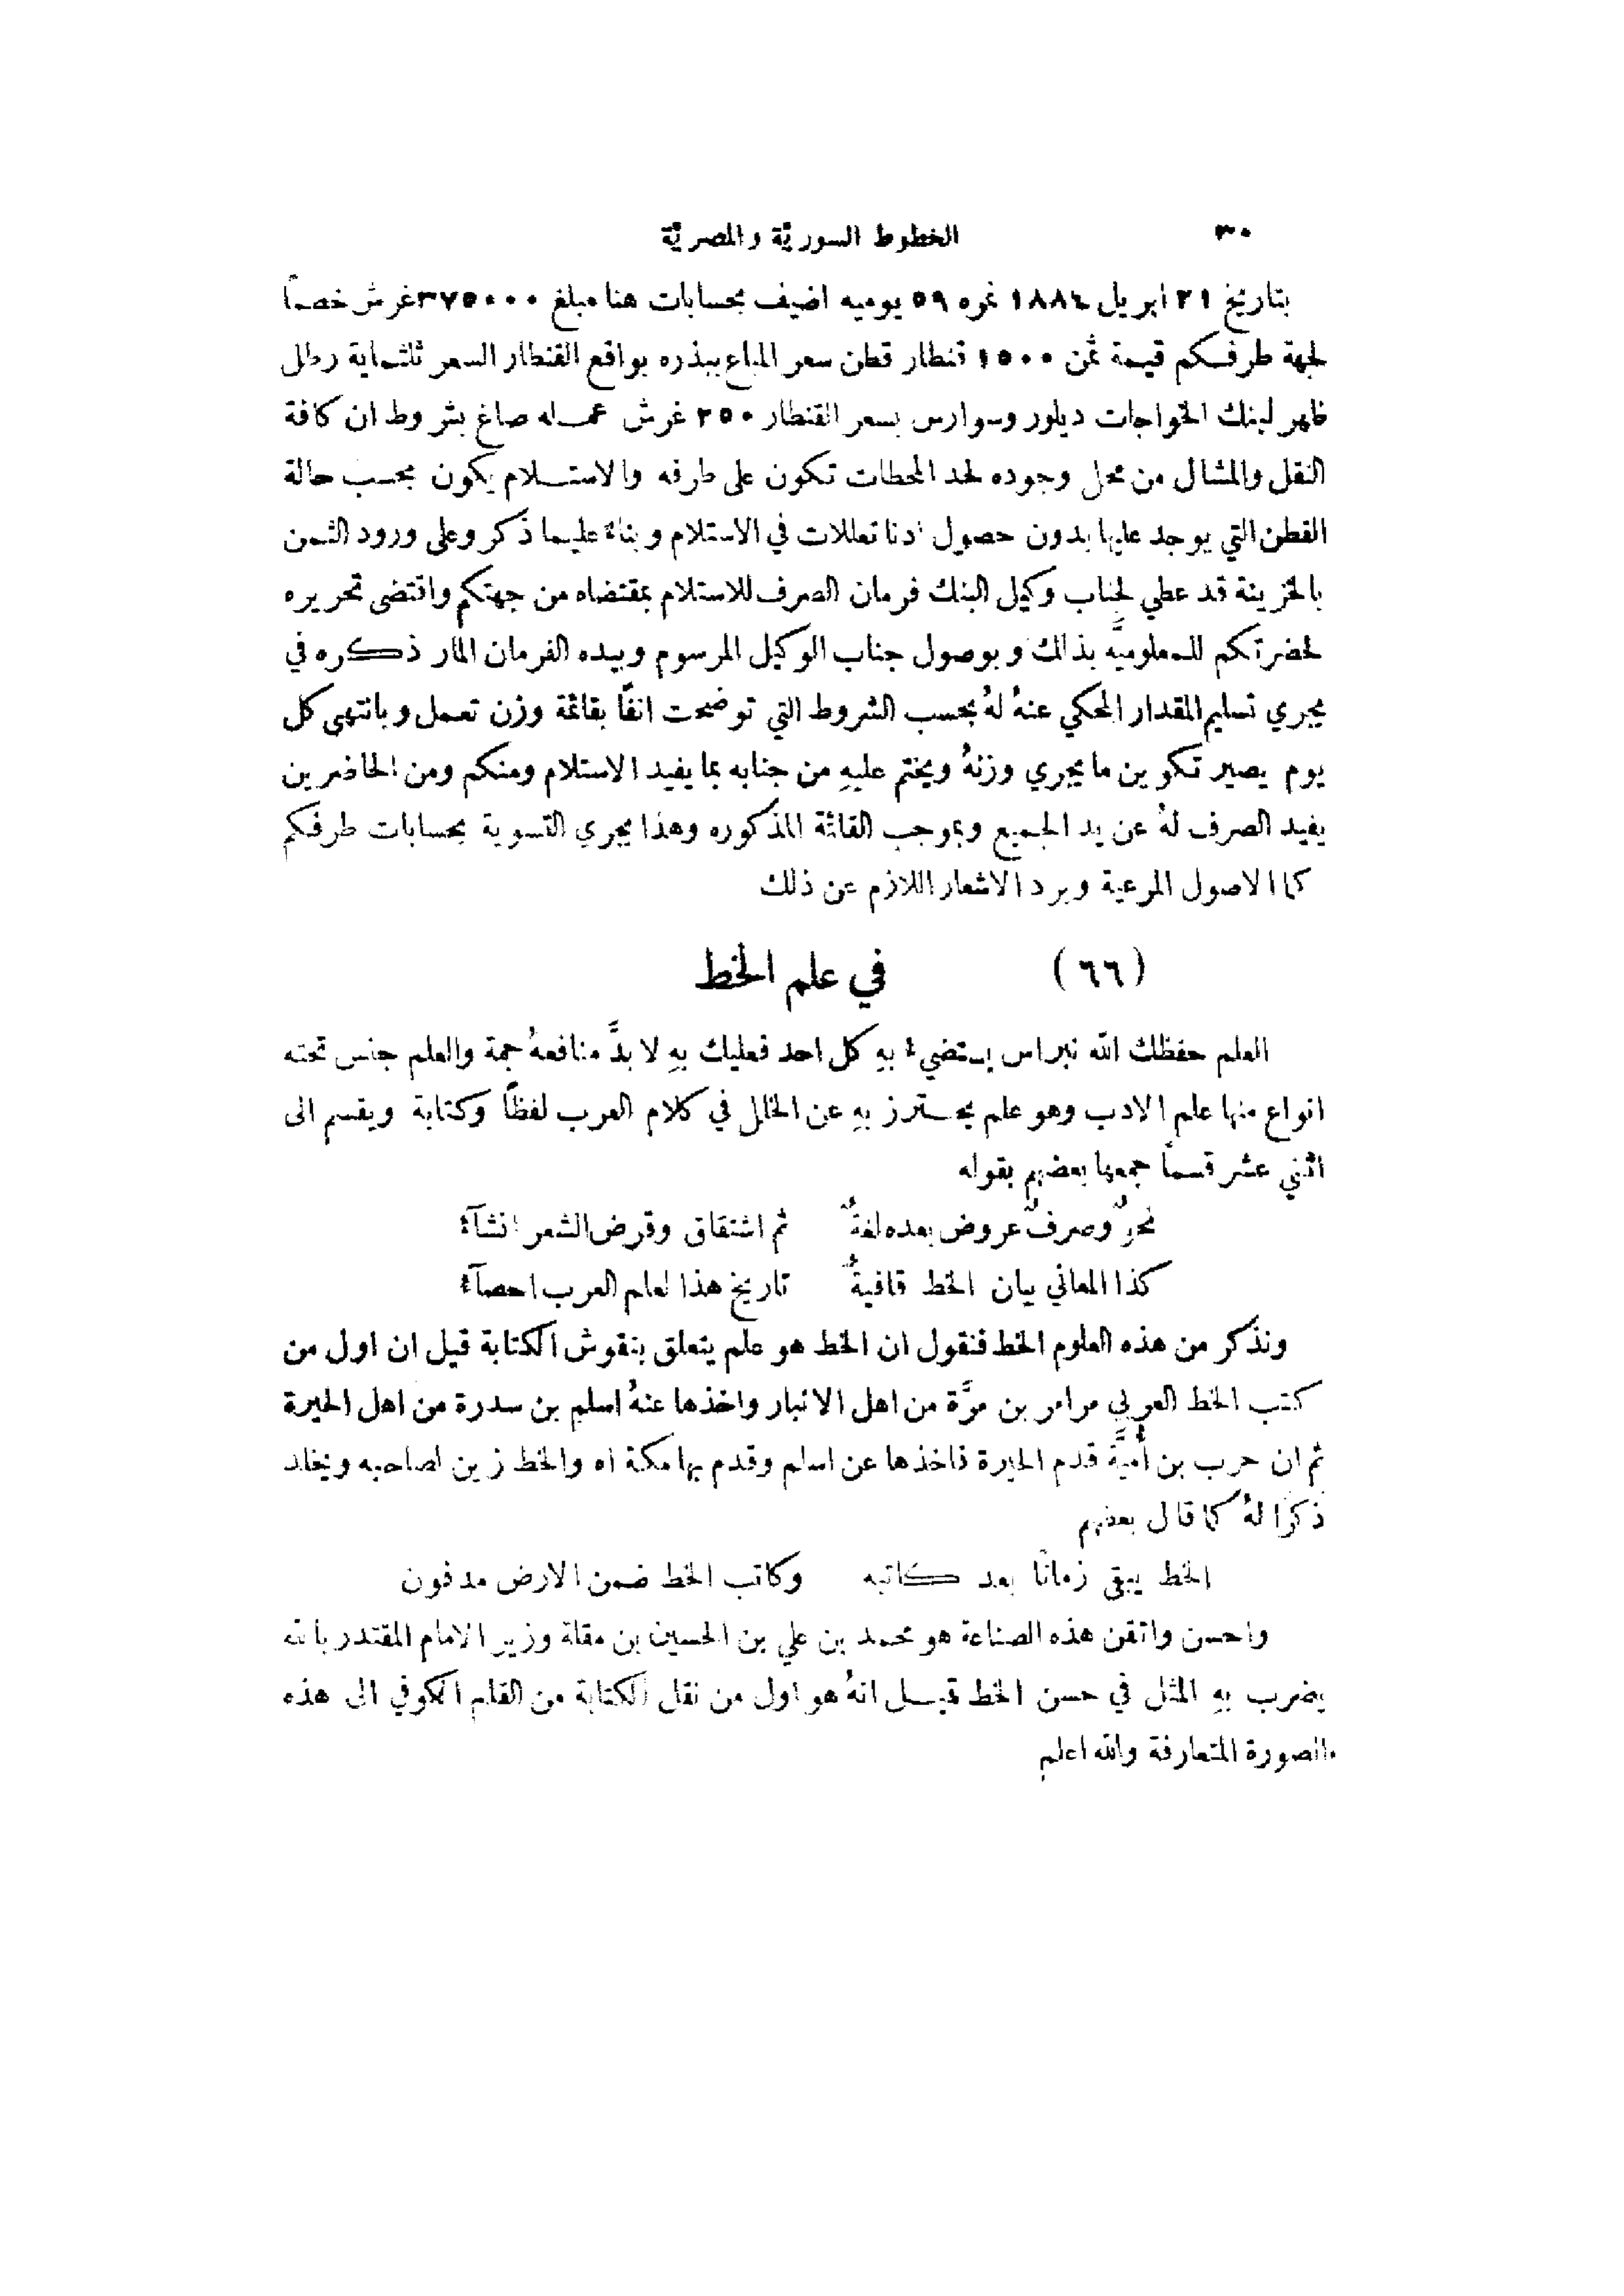 ٣٠ الخطوط السوريَّة والمصريَّة
بتاريخ ٢١ ابريل ١٨٨٤ نمره ٥٩ يوميه اضيف بحسابات هنا مبلغ ٣٧٥٠٠٠ غرش خصماً
لجهة طرفكم قيمة ثمن ١٥٠٠ قنطار قطن سعر المباع ببذره بواقع القنطار السعر ثلثماية رطل
ظهر لبنك الخواجات ديلور وسوارس بسعر القنطار ٢٥٠ غرش عمله صاغ بشروط ان كافة
النقل والمشال من محل وجوده لحد المحطات تكون على طرفه والاستلام يكون بحسب حالة
القطن التي يوجد عليها بدون حصول ادنا تعللات في الاستلام وبناءً عليما ذكر وعلى ورود الثمن
بالخزينة قد عطي لجناب وكيل البنك فرمان الصرف للاستلام بمقتضاه من جهتكم واقتضى تحريره
لحضرتكم للمعلوميَّه بذلك وبوصول جناب الوكيل المرسوم وبيده الفرمان المار ذكره في
يجري تسليم المقدار المحكي عنهُ لهُ بحسب الشروط التي توضحت انفًا بقائمة وزن تعمل وبانتهى كل
يوم يصير تكوين ما يجري وزنهُ ويختم عليهِ من جنابه بما يفيد الاستلام ومنكم ومن الحاضرين
يفيد الصرف لهُ عن يد الجميع وبموجب القائمة المذكوره وهذا يجري التسوية بحسابات طرفكم
كما الاصول المرعية ويرد الاشعار اللازم عن ذلك
(٦٦) في علم الخط
العلم حفظك الله نبراس يستضيءُ بهِ كل احد فعليك بهِ لا بدَّ منافعهُ جمة والعلم جنس تحته
انواع منها علم الادب وهو علم يحترز بهِ عن الخلل في كلام العرب لفظًا وكتابة ويقسم الى
اثني عشر قسماً جمعها بعضهم بقوله
نحوٌ وصرفٌ عروض بعده لغةٌ ثم اشتقاق وقرض الشعر انشآءُ
كذا المعاني بيان الخط قافيةٌ تاريخ هذا لعلم العرب احصآءُ
ونذكر من هذه العلوم الخط فنقول ان الخط هو علم يتعلق بنقوش الكتابة قيل ان اول من
كتب الخط العربي مرامر بن مرَّة من اهل الانبار واخذها عنهُ اسلم بن سدرة من اهل الحيرة
ثم ان حرب بن أُميَّة قدم الحيرة فاخذها عن اسلم وقدم بها مكة اه والخط زين لصاحبه ويخلد
ذكرًا لهُ كما قال بعضهم
الخط يبقى زمانًا بعد كاتبه وكاتب الخط ضمن الارض مدفون
واحسن واتقن هذه الصناعة هو محمد بن علي بن الحسين بن مقلة وزير الامام المقتدر بالله
يضرب بهِ المثل في حسن الخط قيل انهُ هو اول من نقل الكتابة من القلم الكوفي الى هذه
الصورة المتعارفة والله اعلم